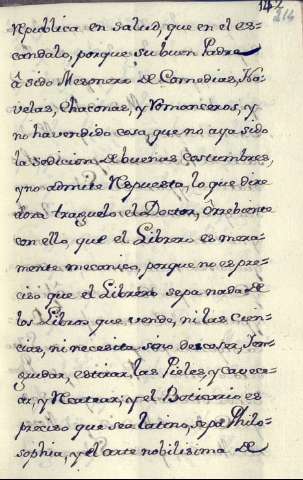 142
214
republica en salud, que en el es-
candalo, porque su buen Padre
â sido Mesonero de Comedias, Na-
velas, Chaconas, y Romanceros, y
no ha vendido cosa, que no aya sido
la sedicion, de buenas costumbres,
y no admite Repuesta, lo que dire
aora traguelo el Doctor, ô rebiente
con ello, que el Librero es mera-
mente mecanico, porque no es pre-
ciso que el Librero sepa nada de
los Libros que vende, ni las Cien-
cias, ni necesita sino de coser, 
 estirar, las Pieles, y cavece-
ar, y y el Boticario es
preciso que sea latino, sepa Philo-
sophia, y el arte nobilisima de